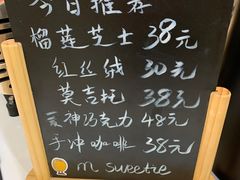 今日推荐
榴莲芝士 38元
红丝绒 30元
莫吉托 38元
巧克力 48元
手冲咖啡 38元
m sweetie